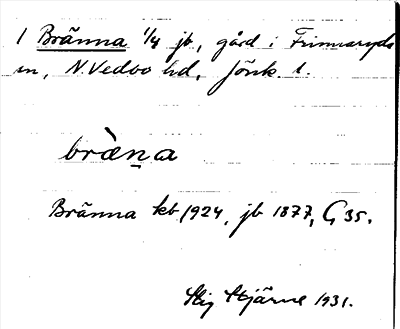 1 Bränna 1/4 jb, gård i Frinnaryds
sn, N. Vedbo hd, Jönk. l.
brὰ̀ena
Bränna kb 1924, jb 1877, G 35.
Stig Stjärne 1931.